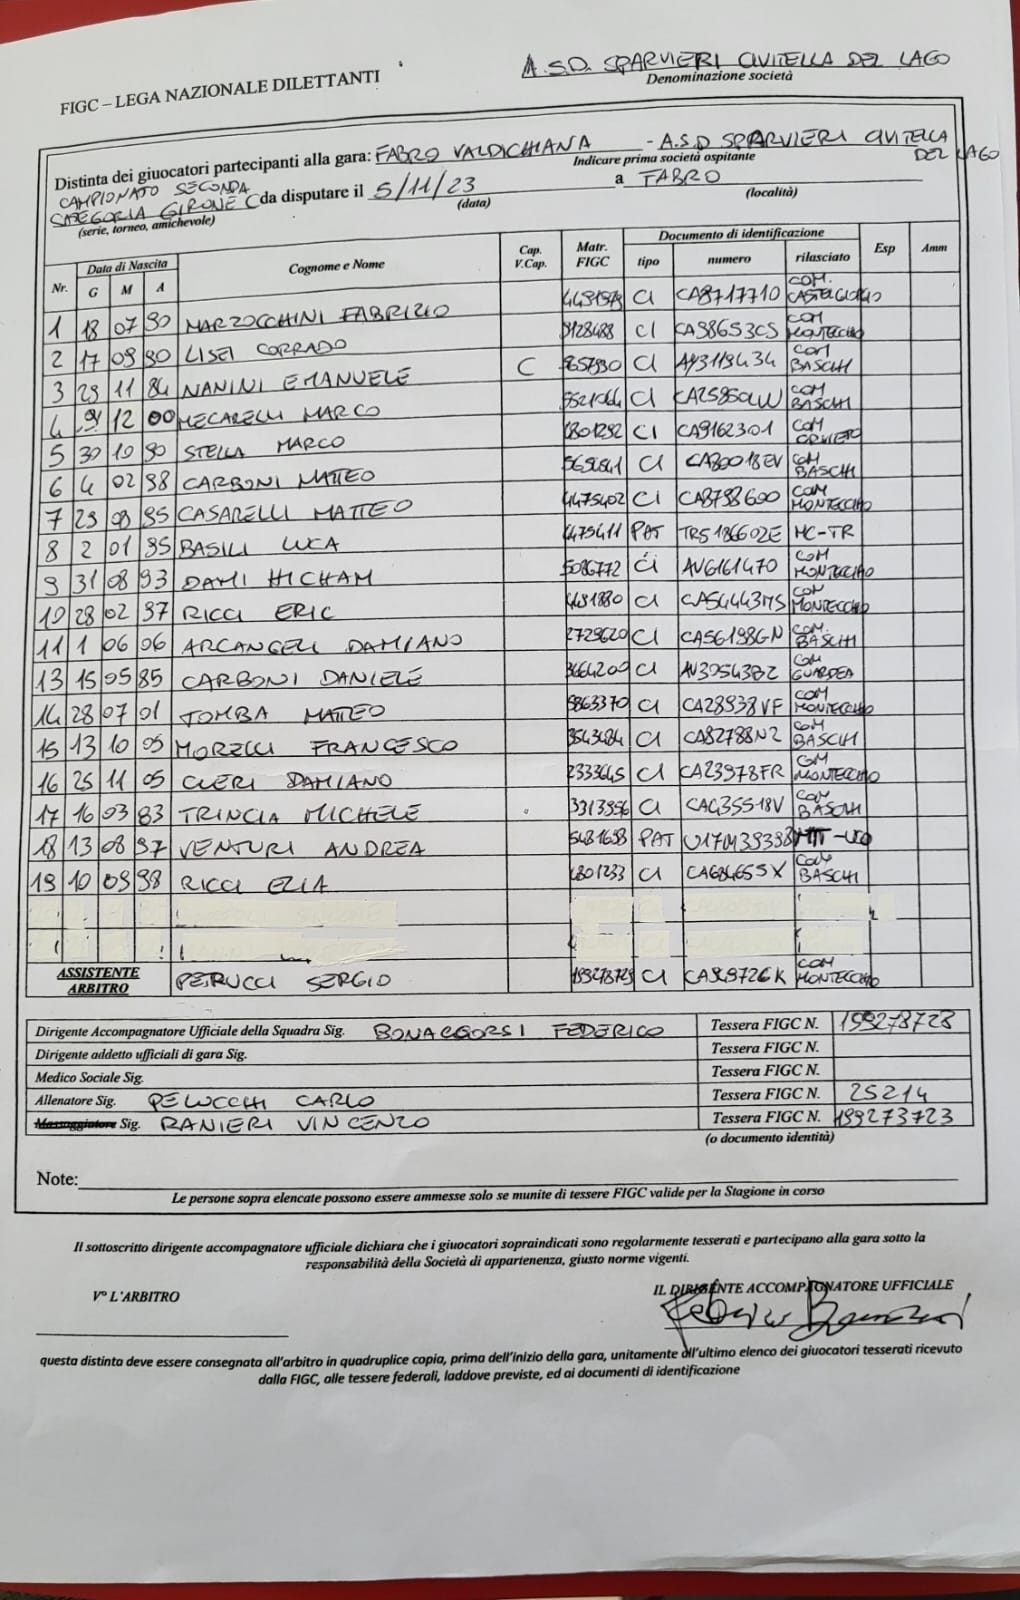 A.S.D. SPARVIERI CIVITELLA DEL LAGO
FIGC – LEGA NAZIONALE DILETTANTI
Denominazione società
Distinta dei giuocatori partecipanti alla gara: FABRO VALDICHIANA - A.S.D SPARVIERI CIVITELLA DEL LAGO
Indicare prima società ospitante
CAMPIONATO SECONDA
CATEGORIA GIRONE C da disputare il 5/11/23 a FABRO
(serie, torneo, amichevole) (data) (località)
Nr. Data di Nascita G M A Cognome e Nome Cap. V.Cap. Matr. FIGC Documento di identificazione tipo numero rilasciato Esp Amm
1 18 07 90 MARZOCCHINI FABRIZIO CI CA8717710 COM. CASTELGIORGIO
2 17 09 90 LISEI CORRADO CI CA98653CS COM MONTECCHIO
3 29 11 84 NANINI EMANUELE C CI AY3119434 COM BASCHI
4 12 00 MECARELLI MARCO CI COM BASCHI
5 30 10 90 STELLA MARCO CI CA9162301 COM ORVIETO
6 4 02 98 CARBONI MATTEO CI CA80018EV COM BASCHI
7 29 08 95 CASARELLI MATTEO 4475402 CI CA8798600 COM MONTECCHIO
8 2 01 95 BASILI LUCA 4475411 PAT TR5186602E MC-TR
9 31 08 93 DAMI HICHAM 5086772 CI AV6161470 COM MONTECCHIO
10 28 02 97 RICCI ERIC CI CA54443MS COM MONTECCHIO
11 1 06 06 ARCANGELI DAMIANO 2729620 CI CA56198GN COM. BASCHI
13 15 05 85 CARBONI DANIELE 3664200 CI COM GUARDEA
14 28 07 01 TOMBA MATTEO CI CA28938VF COM MONTECCHIO
15 13 10 05 MORELLI FRANCESCO 3543484 CI CA82788NZ COM BASCHI
16 25 11 05 CLERI DAMIANO 2333645 CI CA23978FR COM MONTECCHIO
17 16 03 83 TRINCIA MICHELE 3313956 CI COM BASCHI
18 13 08 97 VENTURI ANDREA PAT
19 10 09 98 RICCI ELIA CI CA68465SX COM BASCHI
ASSISTENTE ARBITRO PETRUCCI SERGIO CI COM MONTECCHIO
Dirigente Accompagnatore Ufficiale della Squadra Sig. BONACCORSI FEDERICO Tessera FIGC N. 199278728
Dirigente addetto ufficiali di gara Sig. Tessera FIGC N.
Medico Sociale Sig. Tessera FIGC N.
Allenatore Sig. PELUCCHI CARLO Tessera FIGC N. 25214
Massaggiatore Sig. RANIERI VINCENZO Tessera FIGC N. 199273723
(o documento identità)
Note:
Le persone sopra elencate possono essere ammesse solo se munite di tessere FIGC valide per la Stagione in corso
Il sottoscritto dirigente accompagnatore ufficiale dichiara che i giuocatori sopraindicati sono regolarmente tesserati e partecipano alla gara sotto la
responsabilità della Società di appartenenza, giusto norme vigenti.
V° L'ARBITRO IL DIRIGENTE ACCOMPAGNATORE UFFICIALE
questa distinta deve essere consegnata all'arbitro in quadruplice copia, prima dell'inizio della gara, unitamente all'ultimo elenco dei giuocatori tesserati ricevuto
dalla FIGC, alle tessere federali, laddove previste, ed ai documenti di identificazione